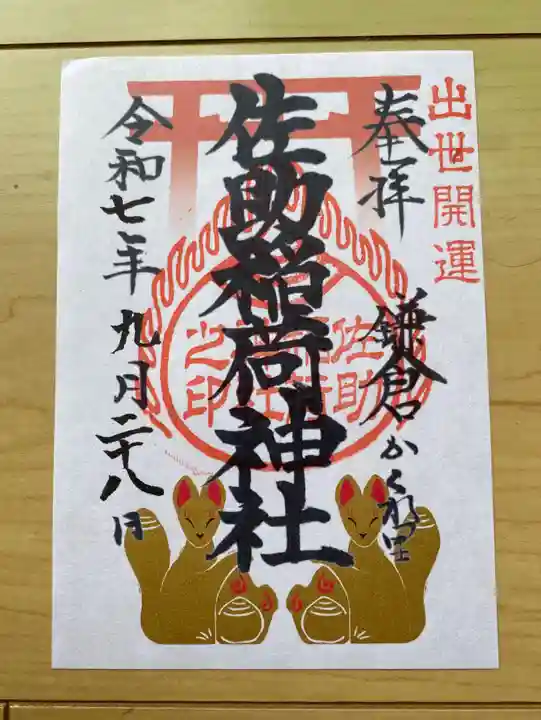 出世開運
奉拝
鎌倉かくれ里
佐助稲荷神社
佐助
稲荷
神社
之印
令和七年九月二十八日